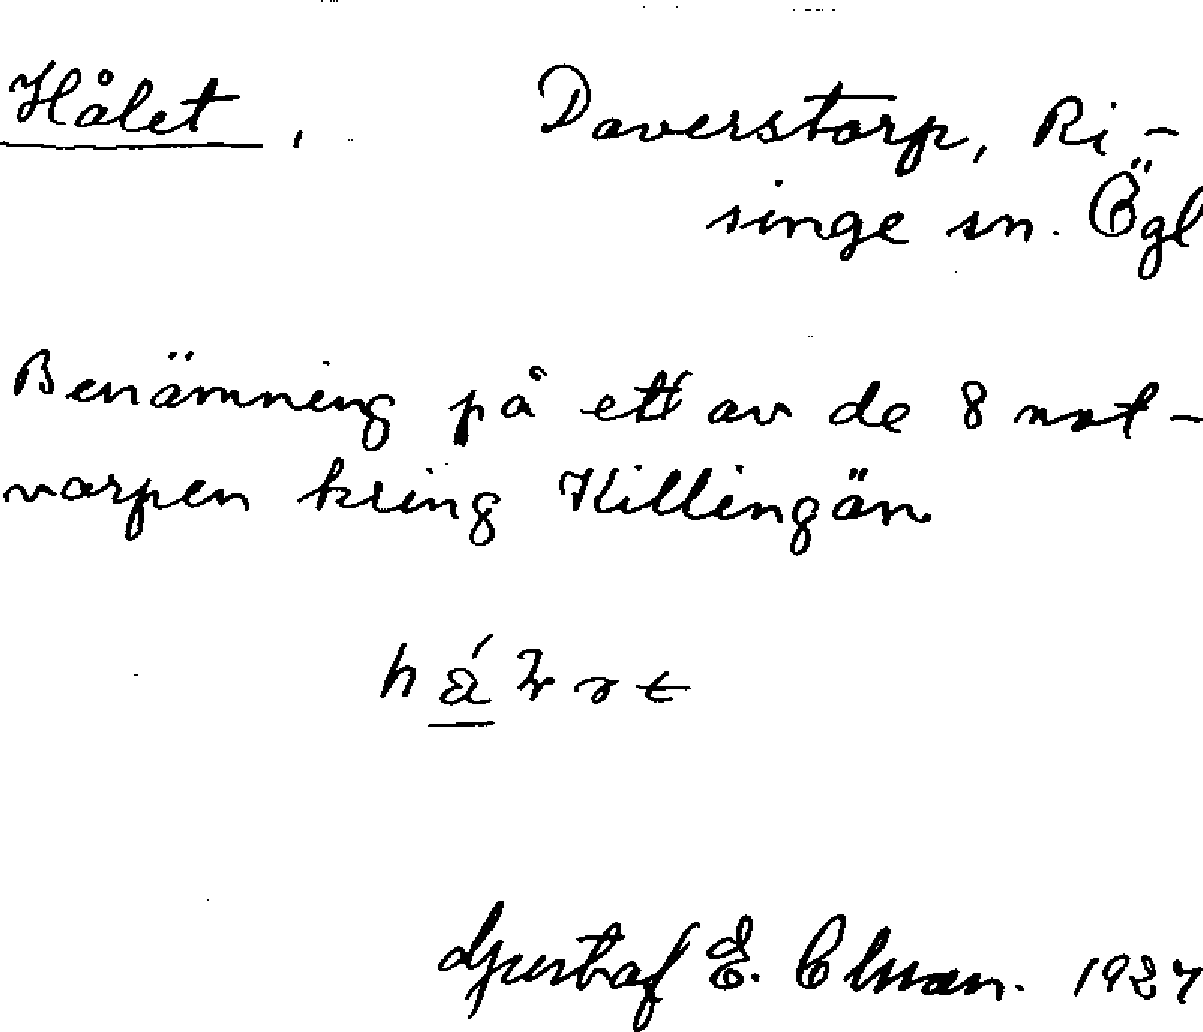 Hålet, Daverstorp, Ri-
singe sn. Ögl
Benämning på ett av de 8 not-
varpen kring Killingön
Gustaf E. Ohman. 1927